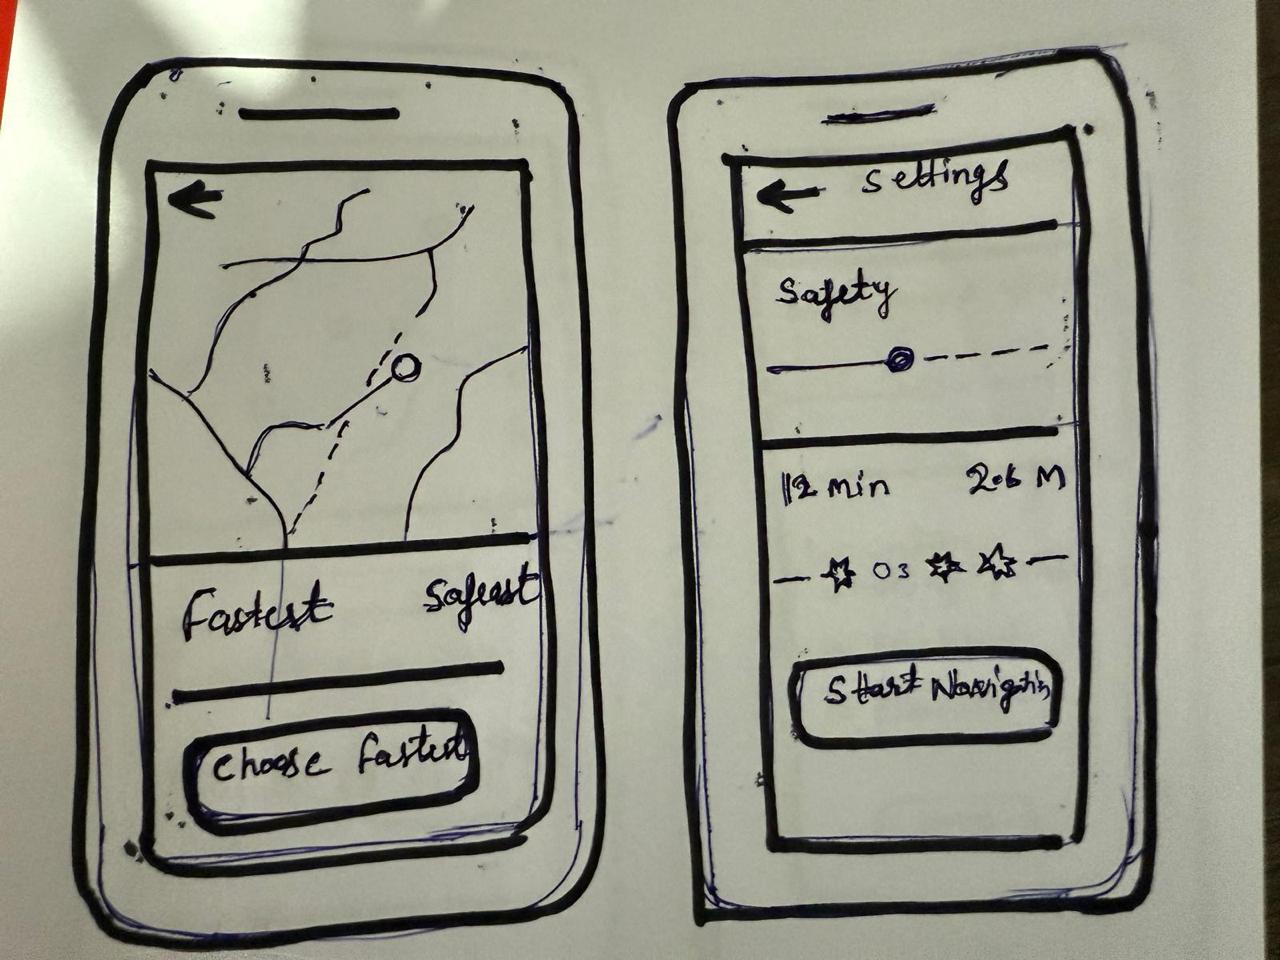 Fastest Safest
Choose Fastest
Settings
Safety
12 min 2.6 M
03
Start Navigatin